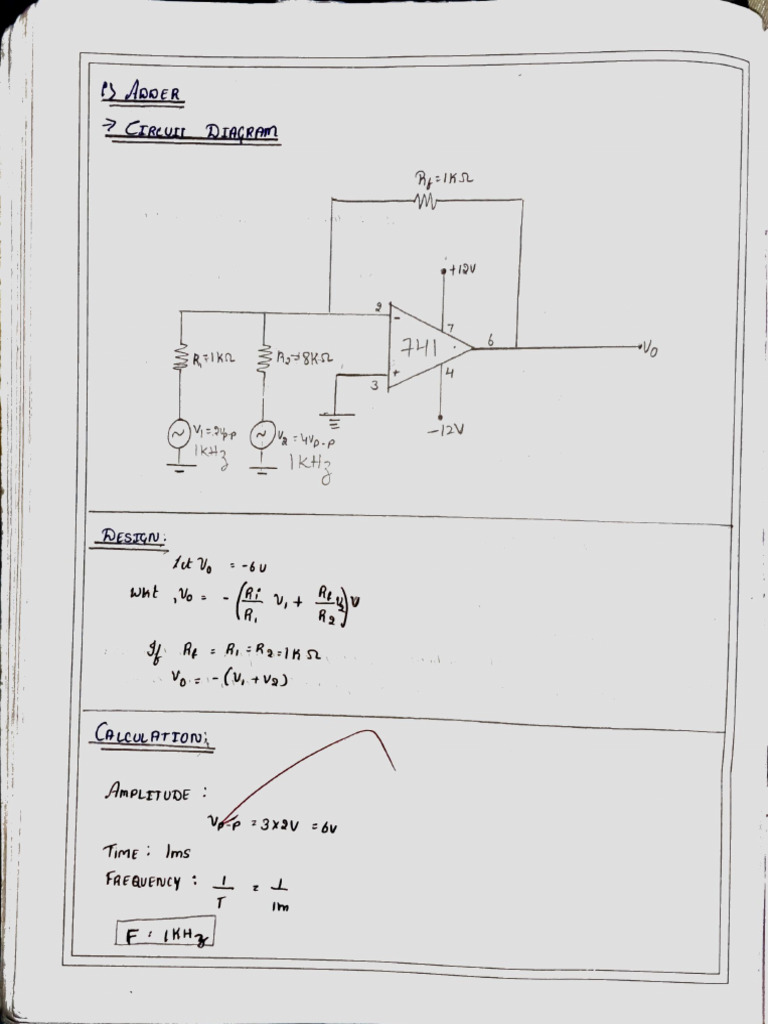 1) ADDER
→ CIRCUIT DIAGRAM
Rf = 1KΩ
+12V
2
-
7
R1=1KΩ
741
6
V0
+
3
4
-12V
1KHz
V2 = 4Vp-p
1KHz
DESIGN:
Let V0 = -6V
WKT, V0 = - (Ri/R1 V1 + Rf/R2 V2) V
If Rf = R1 = R2 = 1KΩ
V0 = -(V1 + V2)
CALCULATION:
AMPLITUDE :
Vp-p = 3 x 2V = 6V
TIME : 1ms
FREQUENCY : 1/T = 1/1m
F : 1KHz